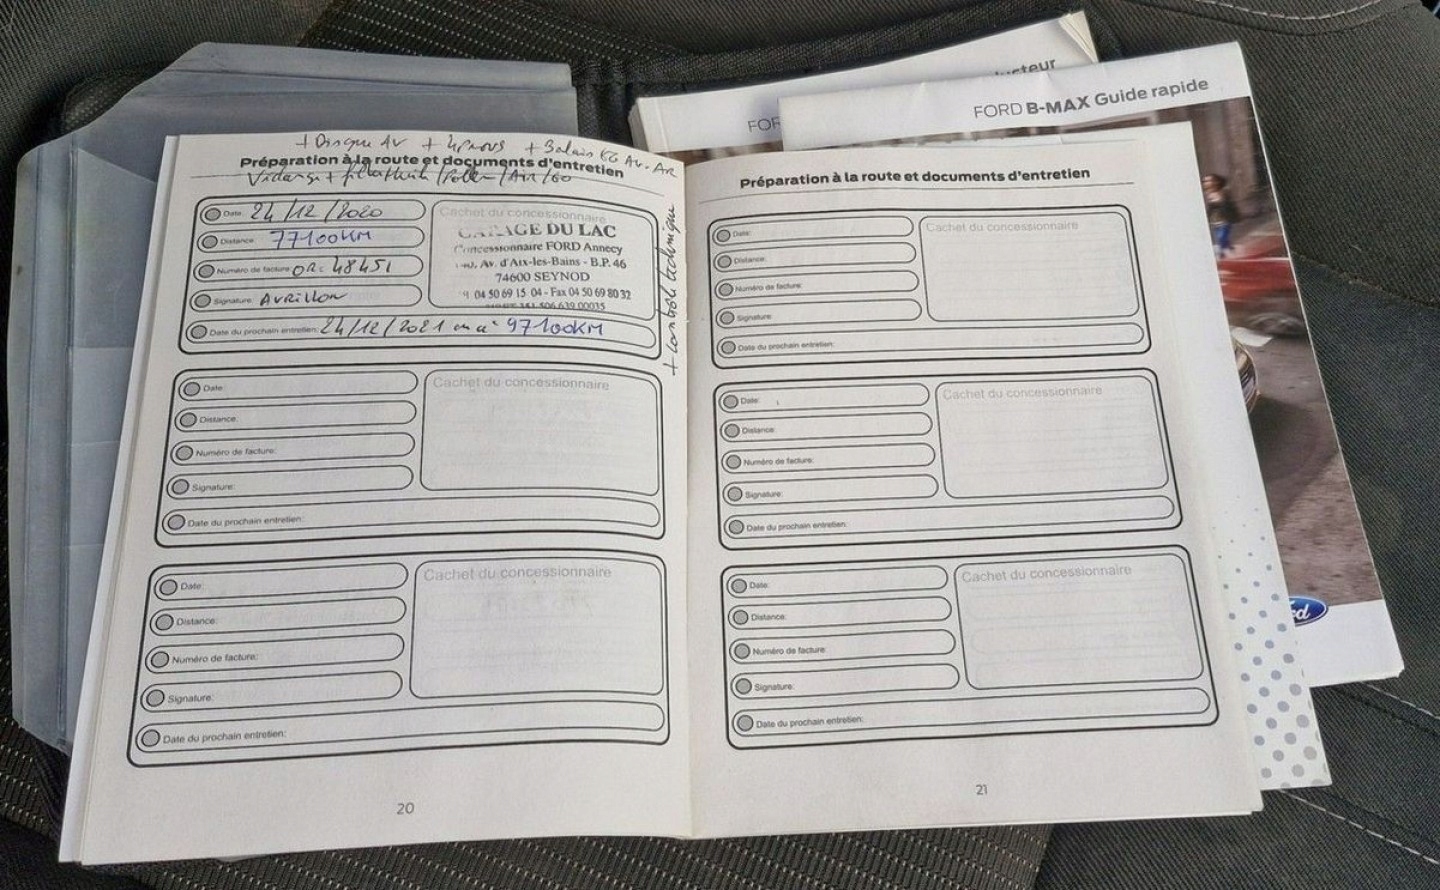 + Disque AV + 4 pneus + Balais EG AV-AR
Préparation à la route et documents d'entretien
Vidange + filtre Huile / Pollen / AIR / GO
Date: 24/12/2020
Distance: 77100KM
Numéro de facture: OR: 48451
Signature: AVRILLON
Date du prochain entretien: 24/12/2021 ou à 97100KM
Cachet du concessionnaire
GARAGE DU LAC
Concessionnaire FORD Annecy
Av. d'Aix-les-Bains - B.P. 46
74600 SEYNOD
04 50 69 15 04 - Fax 04 50 69 80 32
+ contrôle technique
Date:
Distance:
Numéro de facture:
Signature:
Date du prochain entretien:
Cachet du concessionnaire
Date:
Distance:
Numéro de facture:
Signature:
Date du prochain entretien:
Cachet du concessionnaire
20
Préparation à la route et documents d'entretien
Date:
Distance:
Numéro de facture:
Signature:
Date du prochain entretien:
Cachet du concessionnaire
Date:
Distance:
Numéro de facture:
Signature:
Date du prochain entretien:
Cachet du concessionnaire
Date:
Distance:
Numéro de facture:
Signature:
Date du prochain entretien:
Cachet du concessionnaire
21
FORD B-MAX Guide rapide